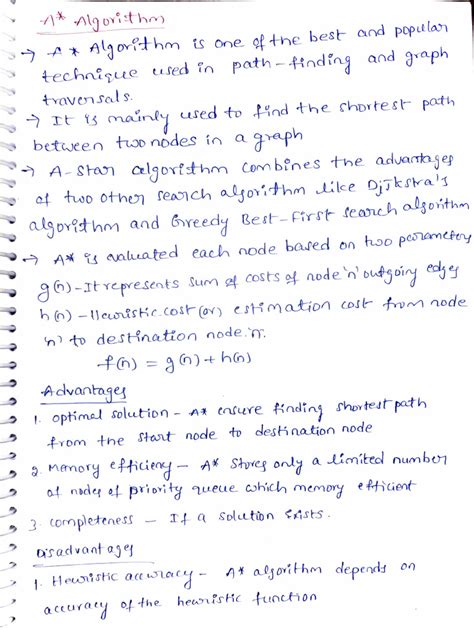 A* Algorithm
→ A * Algorithm is one of the best and popular
technique used in path-finding and graph
traversals.
→ It is mainly used to find the shortest path
between two nodes in a graph
→ A-star algorithm combines the advantages
of two other search algorithm like Djikstra's
algorithm and Greedy Best-First search algorithm
→ A* is valuated each node based on two parameters
g(n)-It represents sum of costs of node 'n' outgoing edges
h(n) - Heuristic cost (or) estimation cost from node
'n' to destination node 'n'.
f(n) = g(n)+h(n)
Advantages
1. optimal solution - A* ensure finding shortest path
from the start node to destination node
2. Memory efficieny - A* stores only a limited number
of nodes of priority queue which memory efficient
3. completeness - If a solution exists.
Disadvantages
1. Heuristic accuracy - A* algorithm depends on
accuracy of the heuristic function